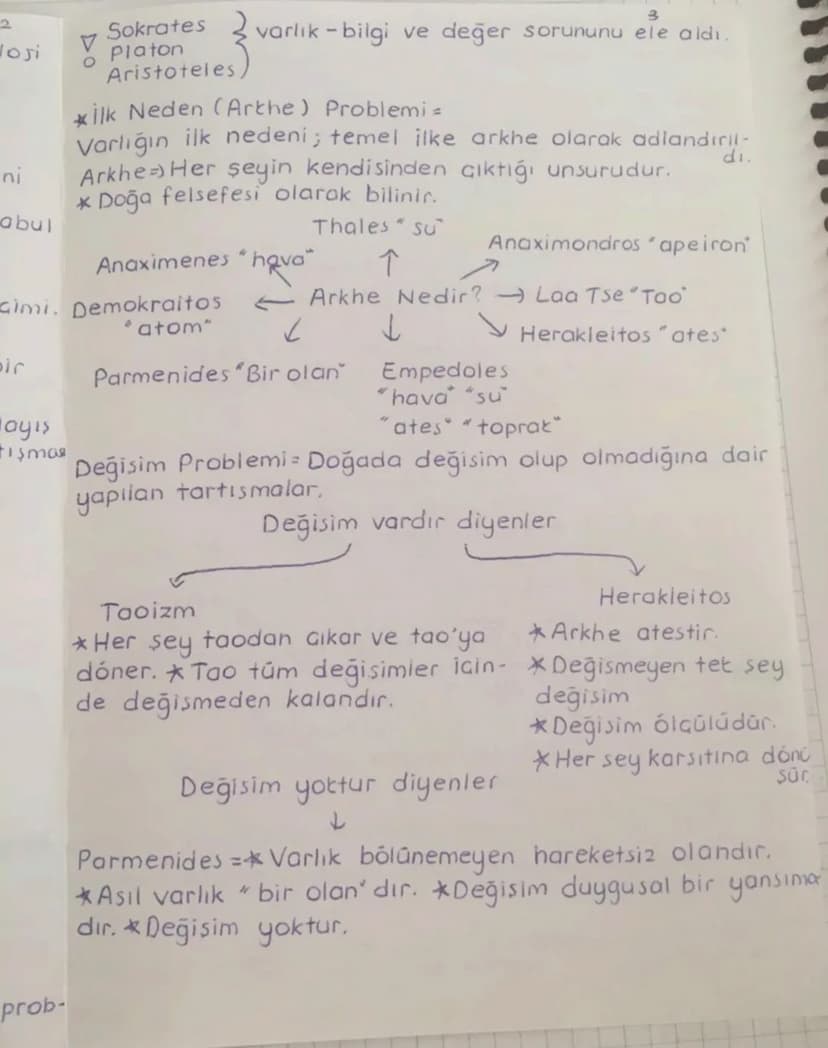 2
loji
ni
abul
cimi.
bir
layış
tışması
prob-
3
Sokrates
Platon
Aristoteles
varlık - bilgi ve değer sorununu ele aldı.
* İlk Neden (Arkhe) Problemi =
Varlığın ilk nedeni; temel ilke arkhe olarak adlandırıl-
dı.
Arkhe => Her şeyin kendisinden çıktığı unsurudur.
* Doğa felsefesi olarak bilinir.
Thales "su"
Anaximenes "hava"
Anaximondros "apeiron"
Demokraitos
"atom"
← Arkhe Nedir? → Laa Tse "Tao"
Herakleitos "ates"
Parmenides "Bir olan"
Empedoles
"hava" "su"
"ates" "toprak"
Değisim Problemi = Doğada değisim olup olmadığına dair
yapılan tartısmalar.
Değisim vardır diyenler
Taoizm
* Her sey taodan cıkar ve tao'ya
döner. * Tao tüm değisimler icin-
de değismeden kalandır.
Herakleitos
* Arkhe atestir.
* Değismeyen tek sey
değisim
* Değisim ölcülüdür.
* Her sey karsıtına dönü
sür.
Değisim yoktur diyenler
↓
Parmenides = * Varlık bölünemeyen hareketsiz olandır.
* Asıl varlık "bir olan" dır. * Değisim duygusal bir yansıma
dır. * Değişim yoktur.